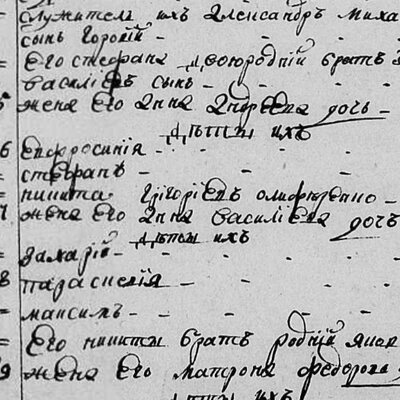 служитель ихъ Александръ Миха
сынъ Горкій -
= Его стефана двоюродній братъ
василіевъ сынъ - - -
5 жена Его Анна Андреева дочь -
дѣти ихъ
6 Ефросинія - - -
= стефанъ - - -
= никита Григоріевъ -
7 жена Его Анна василіева дочь
дѣти ихъ
= Захарій - - -
8 параскевія - - -
= максимъ - - -
= Его никиты братъ родній
9 жена Его матрона федорова
дѣти ихъ